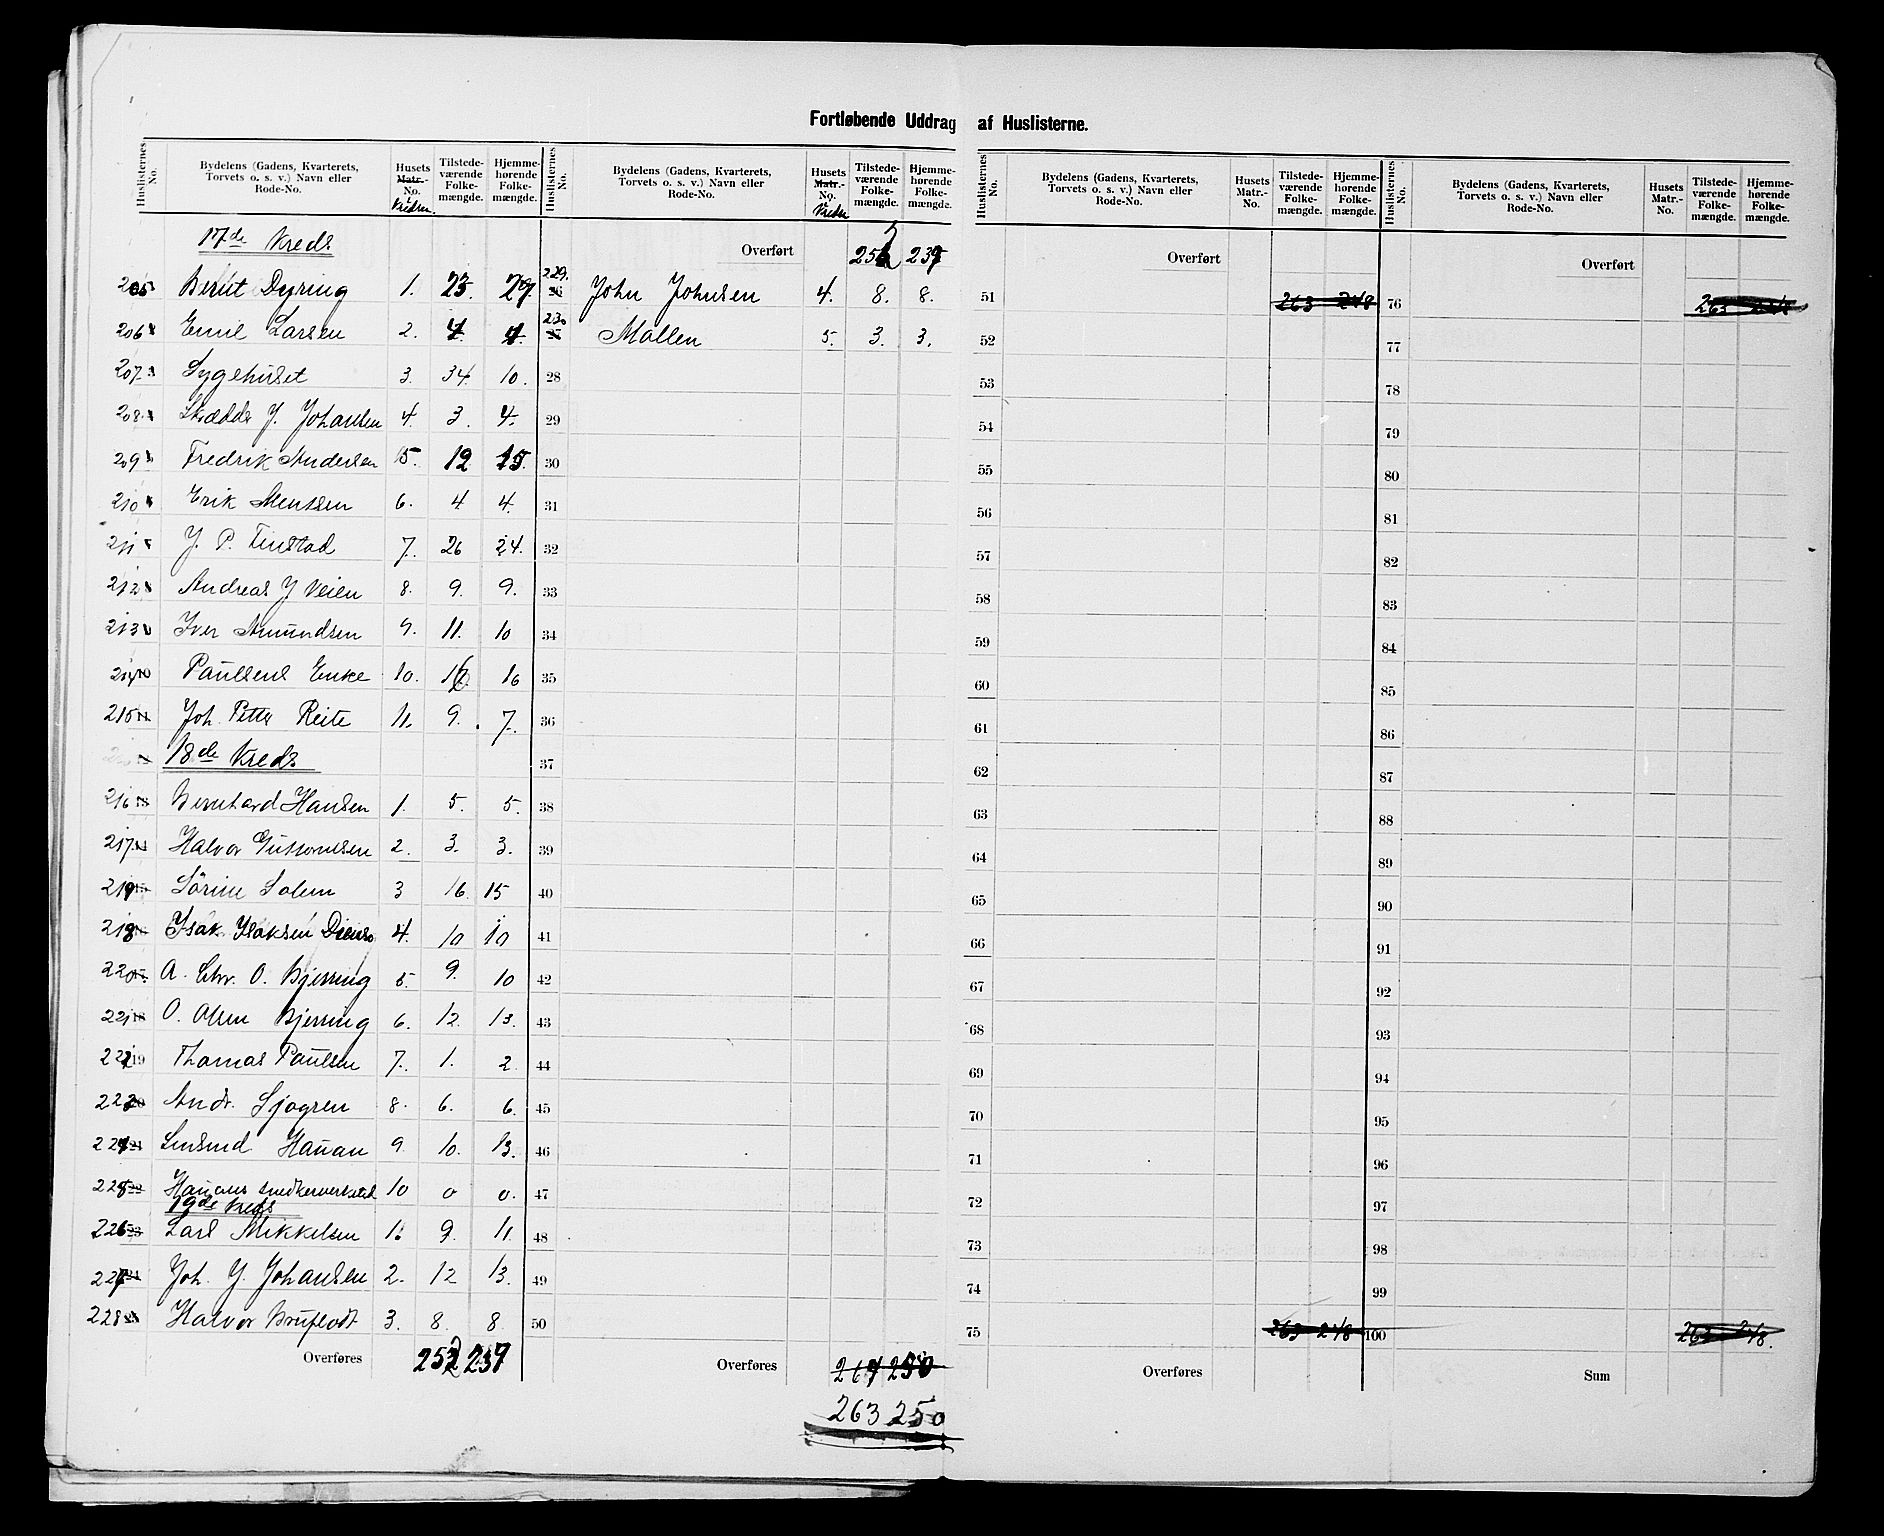 Fortløbende Uddrag af Huslisterne.
Huslisternes No. Bydelens (Gadens, Kvarterets, Torvets o. s. v.) Navn eller Rode-No. Husets Matr.-No. i Kredsen. Tilstede-værende Folke-mængde. Hjemme-hørende Folke-mængde.
17de Kreds
205 Bernt Dyring 1. 23. 29.
206 Emil Larsen 2. 4. 4.
207 Sygehuset 3. 34. 10.
208 J. Johansen 4. 3. 4.
209 Fredrik Andersen 5. 12 15.
210 Erik Mentsen 6. 4 4.
211 J. P. Finstad 7. 26 24.
212 Andreas J Veien 8. 9. 9.
213 Iver Amundsen 9. 11. 10
214 Paulsens Enke 10. 16 16
215 Joh. Petter Reite 11. 9. 7.
18de Kreds
216 Bernhard Hansen 1. 5. 5.
217 Halvor 2. 3. 3.
219 Sörine Solem 3 16. 15
218 Isak Isaksen 4. 10 10
220 A. Chr. O. Bjerring 5. 9. 10
221 O. Olsen Bjerring 6. 12. 13.
222 19 Thomas Paulsen 7. 1. 2.
223 Andr. Sjøgren 8. 6. 6.
224 Hauan 9. 10. 13.
225 Hauans snedkerverksted 10 0 0.
19de Kreds
226 Lars Mikkelsen 1. 9. 11.
227 Joh. J. Johansen 2. 12 13.
228 Halvor 3. 8. 8
Overføres 252 237
Huslisternes No. Bydelens (Gadens, Kvarterets, Torvets o. s. v.) Navn eller Rode-No. Husets Matr.-No. i Kredsen Tilstede-værende Folke-mængde. Hjemme-hørende Folke-mængde.
Overført 252 237
229. 26 John Johnsen 4. 8. 8.
230 27 Mollen 5. 3. 3.
28
29
30
31
32
33
34
35
36
37
38
39
40
41
42
43
44
45
46
47
48
49
50
Overføres 264 250
263 250
Huslisternes No. Bydelens (Gadens, Kvarterets, Torvets o. s. v.) Navn eller Rode-No. Husets Matr.-No. Tilstede-værende Folke-mængde. Hjemme-hørende Folke-mængde.
Overført
51 263 248
52
53
54
55
56
57
58
59
60
61
62
63
64
65
66
67
68
69
70
71
72
73
74
75 263 248
Overføres
Huslisternes No. Bydelens (Gadens, Kvarterets, Torvets o. s. v.) Navn eller Rode-No. Husets Matr.-No. Tilstede-værende Folke-mængde. Hjemme-hørende Folke-mængde.
Overført
76 263 248
77
78
79
80
81
82
83
84
85
86
87
88
89
90
91
92
93
94
95
96
97
98
99
100 263 248.
Sum